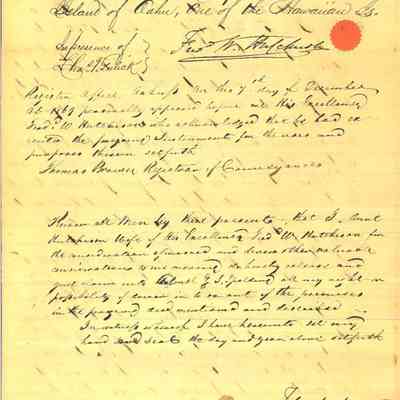 Island of Oahu, one of the Hawaiian Is.
In presence of
Fred W. Hutchison
Register Office Oahu this 7th day of December
AD 1869 personally appeared before me His Excellency
Fred. W Hutchison who acknowledged that he had ex
ecuted the foregoing Instrument for the uses and
purposes therein setforth
Thomas Brown Registrar of Conveyances
Know all Men by these presents, that I
Hutchison Wife of His Excellency Fred W. Hutchison for
the consideration aforesaid and divers other valuable
considerations me moving do hereby release and
quit claim unto all my right or
possibility of dower in to or out of the premises
in the foregoing deed mentioned and described
In witness whereof I have hereunto set my
hand and seal the day and year above setforth